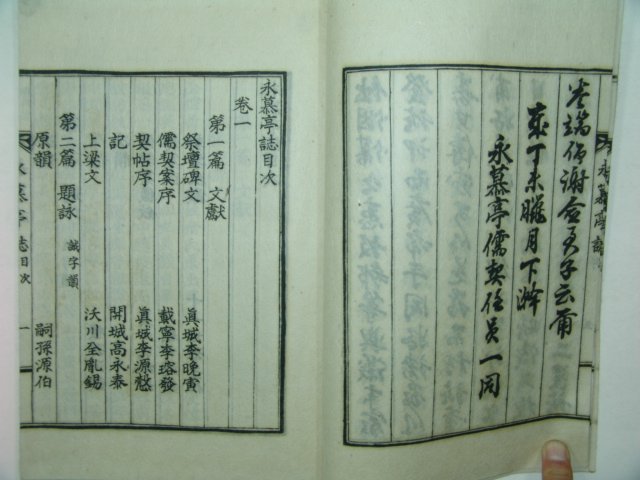 於端仍謝僉君子云爾
歲丁未臘月下澣
永慕亭儒契任員一同
永慕亭誌
永慕亭誌目次
卷一
第一篇 文獻
祭壇碑文 眞城李晩寅
儒契案序 載寧李瑢發
契帖序 眞城李源愨
記 開城高永泰
上梁文 沃川全胤錫
第二篇 題詠 誠字韻
原韻 嗣孫源伯
永慕亭誌目次 一